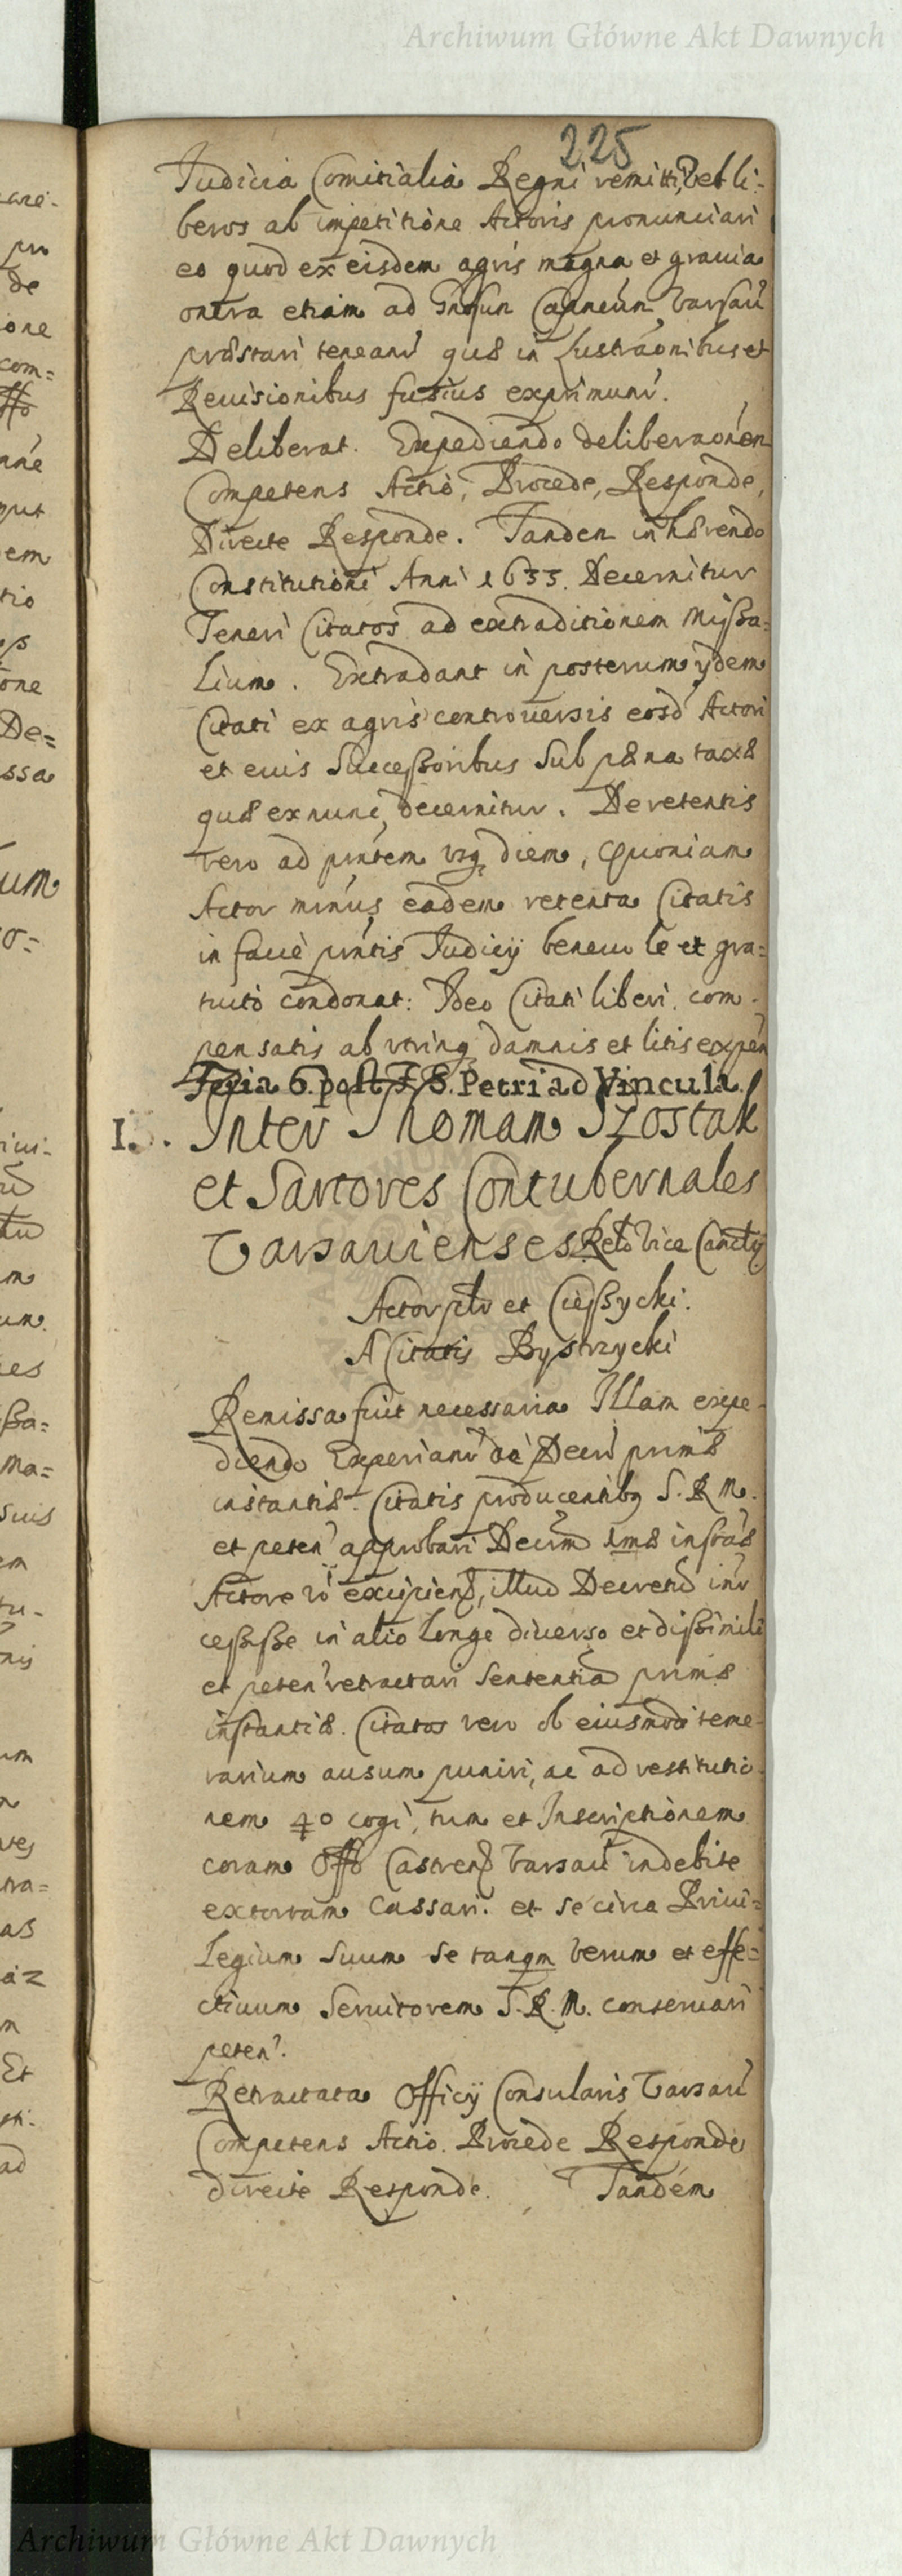 Archiwum Główne Akt Dawnych
225
Judicia Comitialia Regni remitti, vel li-
beros ab impetitione Actoris pronunciari
eo quod ex eisdem agris magna et grauia
onera etiam ad Capneum Varsau
præstari teneanr quæ in Lustraonibus et
Reuisionibus fusius exprimunr.
Deliberat. Expediendo deliberaonem
Competens Actio, Procede, Responde,
Directe Responde. Tandem inhærendo
Constitutioni Anni 1633. Decernitur
Teneri Citatos ad extraditionem Missa=
lium. Extradant in posterum ijdem
Citati ex agris controuersis eosd Actori
et eius Successoribus sub pæna taxæ
quæ ex nunc decernitur. De retentis
vero ad pntem vsq diem, Quoniam
Actor minus eadem retenta Citatis
in facie pntis Judicij beneuole et gra=
tuito condonat: Ideo Citati liberi com-
pensatis ab vtrinq damnis et litis expen
Feria 6. post F. S. Petri ad Vincula.
I. Inter Thomam Szostak
et Sartores Contubernales
Varsauienses Relo Vice Canclij
Actor pltr et Ciessycki.
A Citatis Bystrzycki
Remissa fuit necessaria Illam expe-
diendo Experianr ad Decr primæ
instantiæ. Citatis producentibq S. R. M.
et peten approbari Decrm 1mæ instaæ
Actore ro excipien, illud Decretu inr
cessisse in alio longe diuerso et dissimili
et peten retractari sententia primæ
instantiæ. Citatos vero ob eiusmodi teme-
rarium ausum puniri, ac ad restitutio-
nem 40 cogi, tum et Inscriptionem
coram Offo Castren Varsau indebite
extortam cassari. et se circa Priui=
legium suum se tanqm verum et effe=
ctiuum Seruitorem S. R. M. conseruari
peten.
Retractata Officij Consularis Varsau
Competens Actio. Procede Responde
directe Responde. Tandem
Archiwum Główne Akt Dawnych